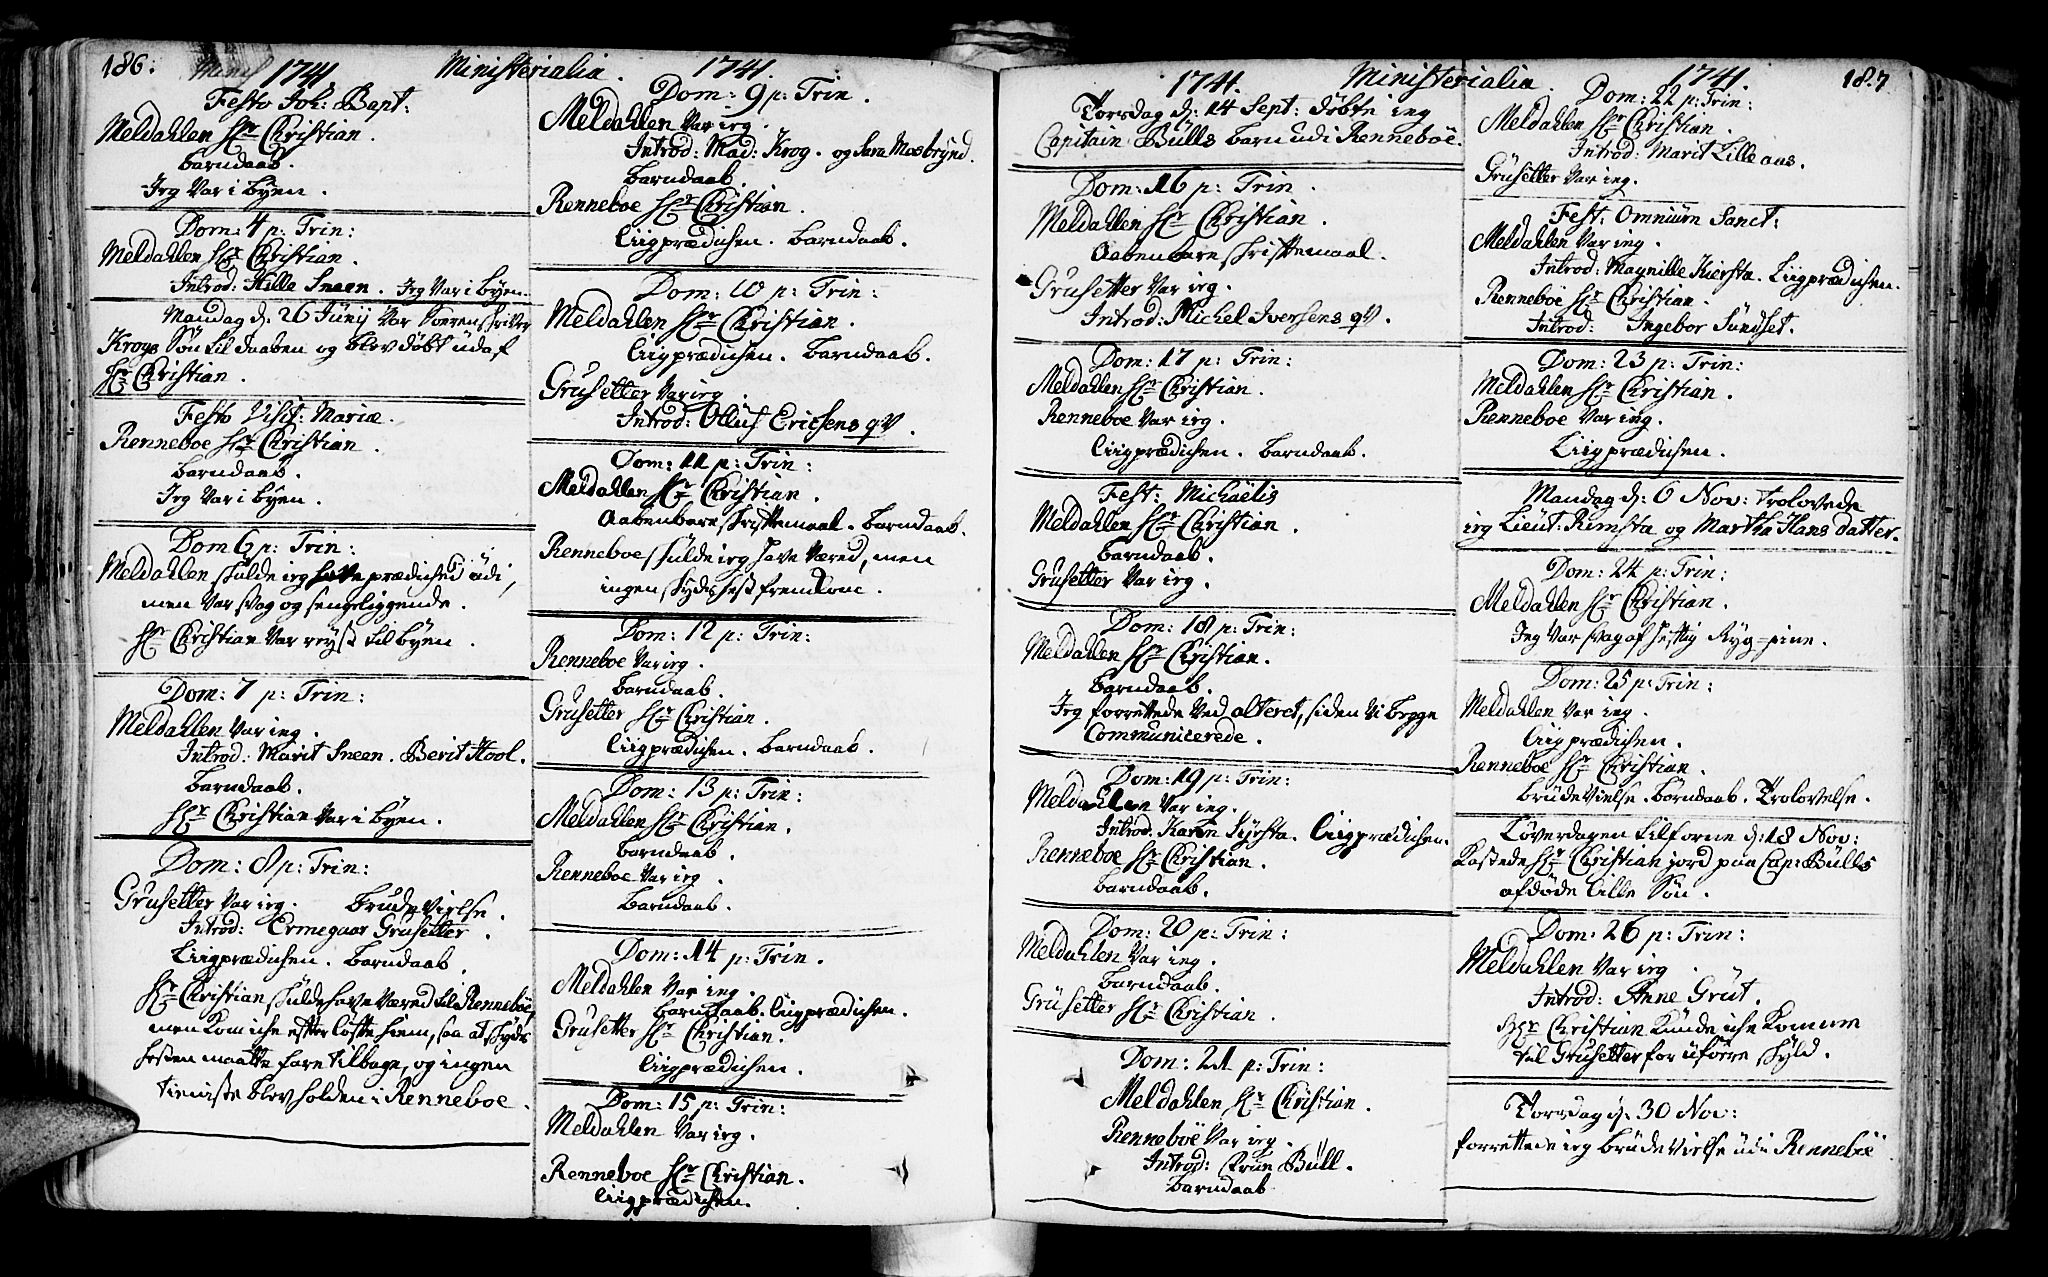 186. 1741 Ministerialia. 1741.
Festo Joh: Bapt:
Meldahlen Hr Christian.
Barndaab.
Jeg var i byen.
Dom: 4 p: Trin:
Meldahlen Hr Christian.
Introd: Kille Sneen. Jeg var i byen.
Mandag d. 26 Junij var Soren skriver
Krogs Søn til daaben og blev døbt udaf
Hr Christian.
Festo Visit: Mariæ.
Renneboe Hr Christian.
Barndaab.
Jeg var i byen.
Dom 6 p: Trin:
Meldahlen skulde ieg have prædiched udi,
men var svag og sengeliggende.
Hr Christian var reyst til byen.
Dom: 7 p: Trin:
Meldahlen var ieg.
Introd: Marit Sneen. Berit Hool.
Barndaab.
Hr Christian var i byen.
Dom: 8 p: Trin:
Grusetter var ieg. Brudevielse.
Introd: Ermegaar Grusetter.
Liigprædichen. Barndaab.
Hr Christian skulde have været til Renneboe,
men kom iche efter løfte hiem, saa at skyds
hesten maatte fare tilbage, og ingen
tieniste blev holden i Renneboe.
Dom: 9 p: Trin.
Meldahlen var ieg.
Introd: Mad: Krog. og Sara Mosbrynd.
Barndaab.
Renneboe Hr Christian.
Liigprædichen. Barndaab.
Dom: 10 p: Trin:
Meldahlen Hr Christian.
Liigprædichen. Barndaab.
Grusetter var ieg.
Introd: Olluf Ericsens qv.
Dom: 11 p: Trin:
Meldahlen Hr Christian.
Aabenbare skriftemaal. Barndaab.
Renneboe skulde ieg have været, men
ingen skydshest fremkom.
Dom: 12 p: Trin:
Renneboe var ieg.
Barndaab.
Grusetter Hr Christian.
Liigprædichen. Barndaab.
Dom: 13 p: Trin:
Meldahlen Hr Christian.
Barndaab.
Renneboe var ieg.
Barndaab.
Dom: 14 p: Trin.
Meldahlen var ieg.
Barndaab. Liigprædichen.
Grusetter Hr Christian.
Liigprædichen.
Dom: 15 p: Trin:
Meldahlen var ieg.
Renneboe Hr Christian.
Liigprædichen.
1741. Ministerialia. 1741. 187
Torsdag d. 14 Sept: døbte ieg
Capitain Bülls barn udi Renneboe.
Dom: 16 p: Trin.
Meldahlen Hr Christian.
Aabenbare skriftemaal.
Grusetter var ieg.
Introd: Michel Iversens qv.
Dom: 17 p: Trin:
Meldahlen Hr Christian.
Renneboe var ieg.
Liigprædichen. Barndaab.
Fest: Michaëlis
Meldahlen Hr Christian.
Barndaab.
Grusetter var ieg.
Dom: 18 p: Trin:
Meldahlen Hr Christian.
Barndaab.
Jeg forrettede ved alteret, siden vi begge
Communicerede.
Dom: 19 p: Trin:
Meldahlen var ieg.
Introd: Karen Liigprædichen.
Renneboe Hr Christian.
Barndaab.
Dom: 20 p: Trin:
Meldahlen var ieg.
Barndaab.
Grusetter Hr Christian.
Dom: 21 p: Trin:
Meldahlen Hr Christian.
Renneboe var ieg.
Introd: Büll.
Barndaab
Dom: 22 p: Trin:
Meldahlen Hr Christian.
Introd: Marit Lilleaas.
Grusetter var ieg.
Fest: Omnium Sanct:
Meldahlen var ieg.
Introd: Magnille Kiersta. Liigprædichen.
Renneboe Hr Christian.
Introd: Ingebor Sundset.
Dom: 23 p: Trin:
Meldahlen Hr Christian.
Renneboe var ieg.
Liigprædichen.
Mandag d. 6 Nov: trolovede
ieg Lieut: Rimsta og Martha Hans datter.
Dom: 24 p: Trin:
Meldahlen Hr Christian.
Jeg var svag af heftig Ryg-pine.
Dom: 25 p: Trin:
Meldahlen var ieg.
Liigprædichen.
Renneboe Hr Christian.
Brudevielse. Barndaab. Trolovelse.
Løverdagen tilforne d. 18 Nov:
Kastede Hr Christian jord paa Cap: Bülls
afdøde lille Søn.
Dom: 26 p: Trin:
Meldahlen var ieg.
Introd: Anne Grut.
Hr Christian kunde iche komme
til Grusetter for uføre skyld.
Torsdag d. 30 Nov:
forrettede ieg brudevielse udi Renneboe